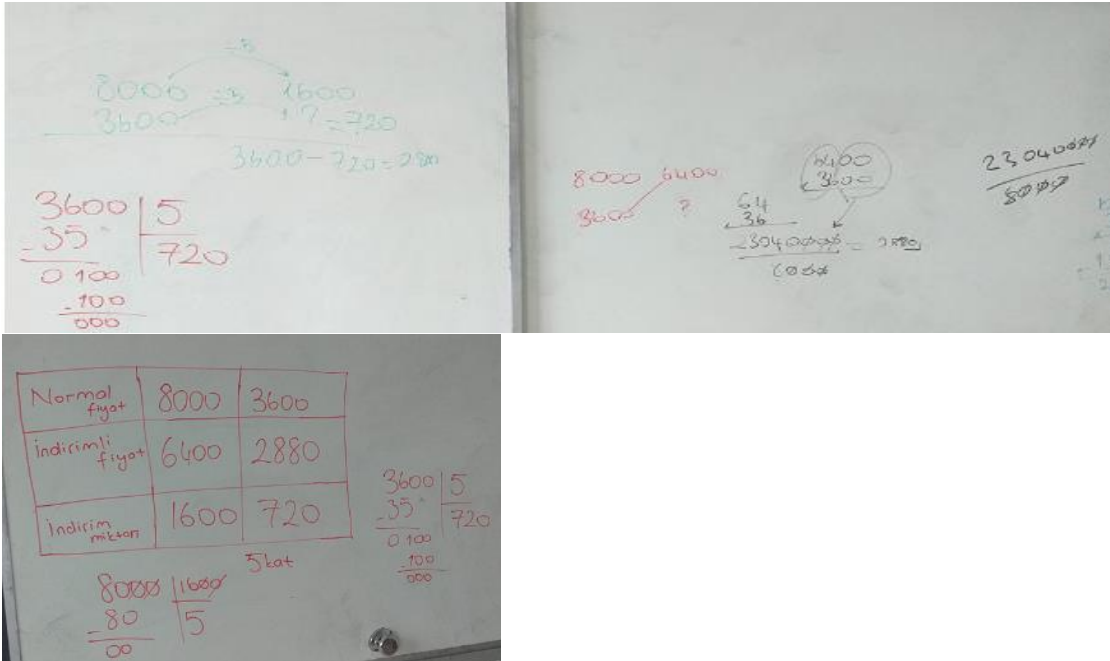 ÷5
8000 ÷5 1600
3600 ? = 720
3600 - 720 = 2880
3600 | 5
- 35 720
0 100
- 100
000
8000 6400
3600 ?
6400
x 3600
64
x 36
23040000
8000
23040000
8000
Normal fiyat 8000 3600
İndirimli fiyat 6400 2880
İndirim miktarı 1600 720
5 kat
8000 | 1600
- 80 5
00
3600 | 5
- 35 720
0 100
- 100
000